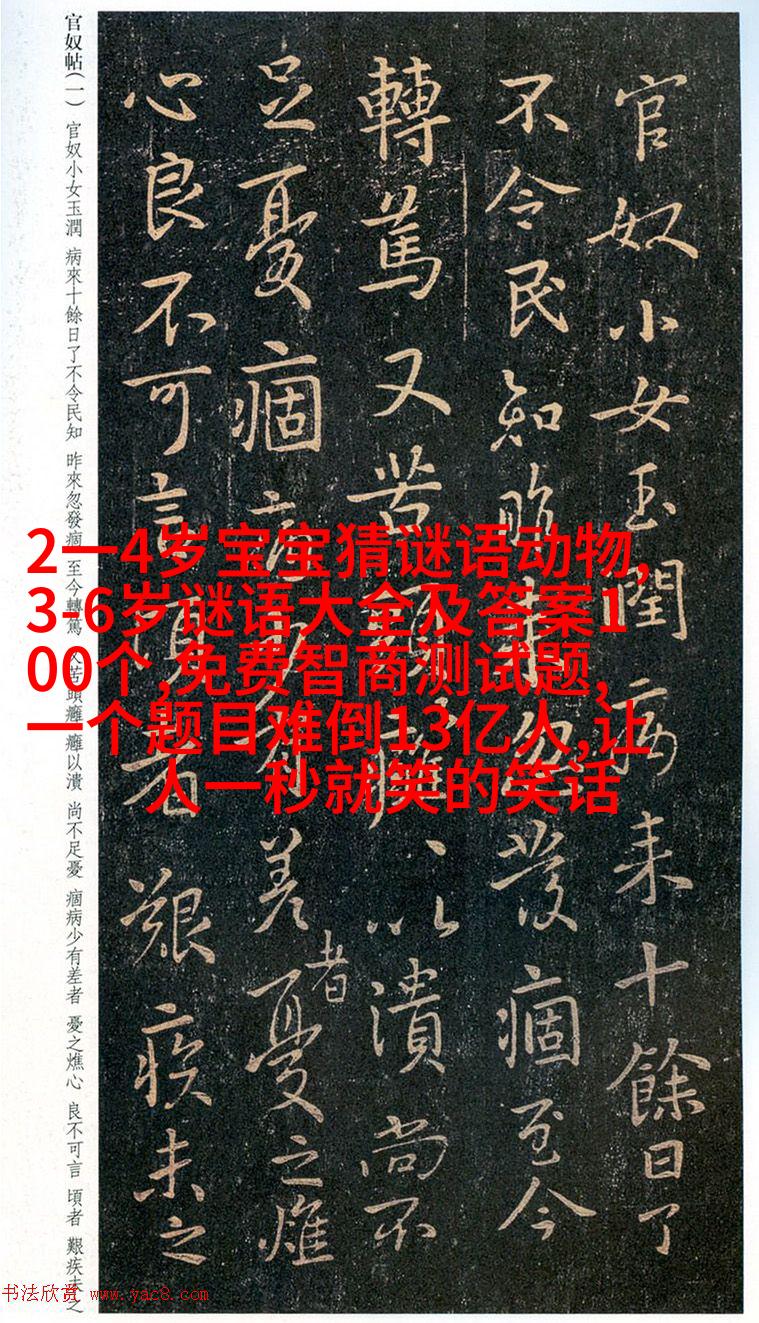 官奴小女玉閏病来十餘日了
不令民知昨来忽發痼至今
轉篤又苦頭癰、以潰尚不
足憂痼病少有差者憂之燋
心良不可言頃者艱疾未之
官奴帖(一) 官奴小女玉潤 病來十餘日了不令民知 昨來忽發痼至今轉篤 又苦頭癰癰以潰 尚不足憂 痼病少有差者 憂之燋心 良不可言 頃者 艱疾未之
2一4岁宝宝猜谜语动物,
3-6岁谜语大全及答案1
00个,免费智商测试题,
一个题目难倒13亿人,让
人一秒就笑的笑话
书法欣赏 www.yac8.com